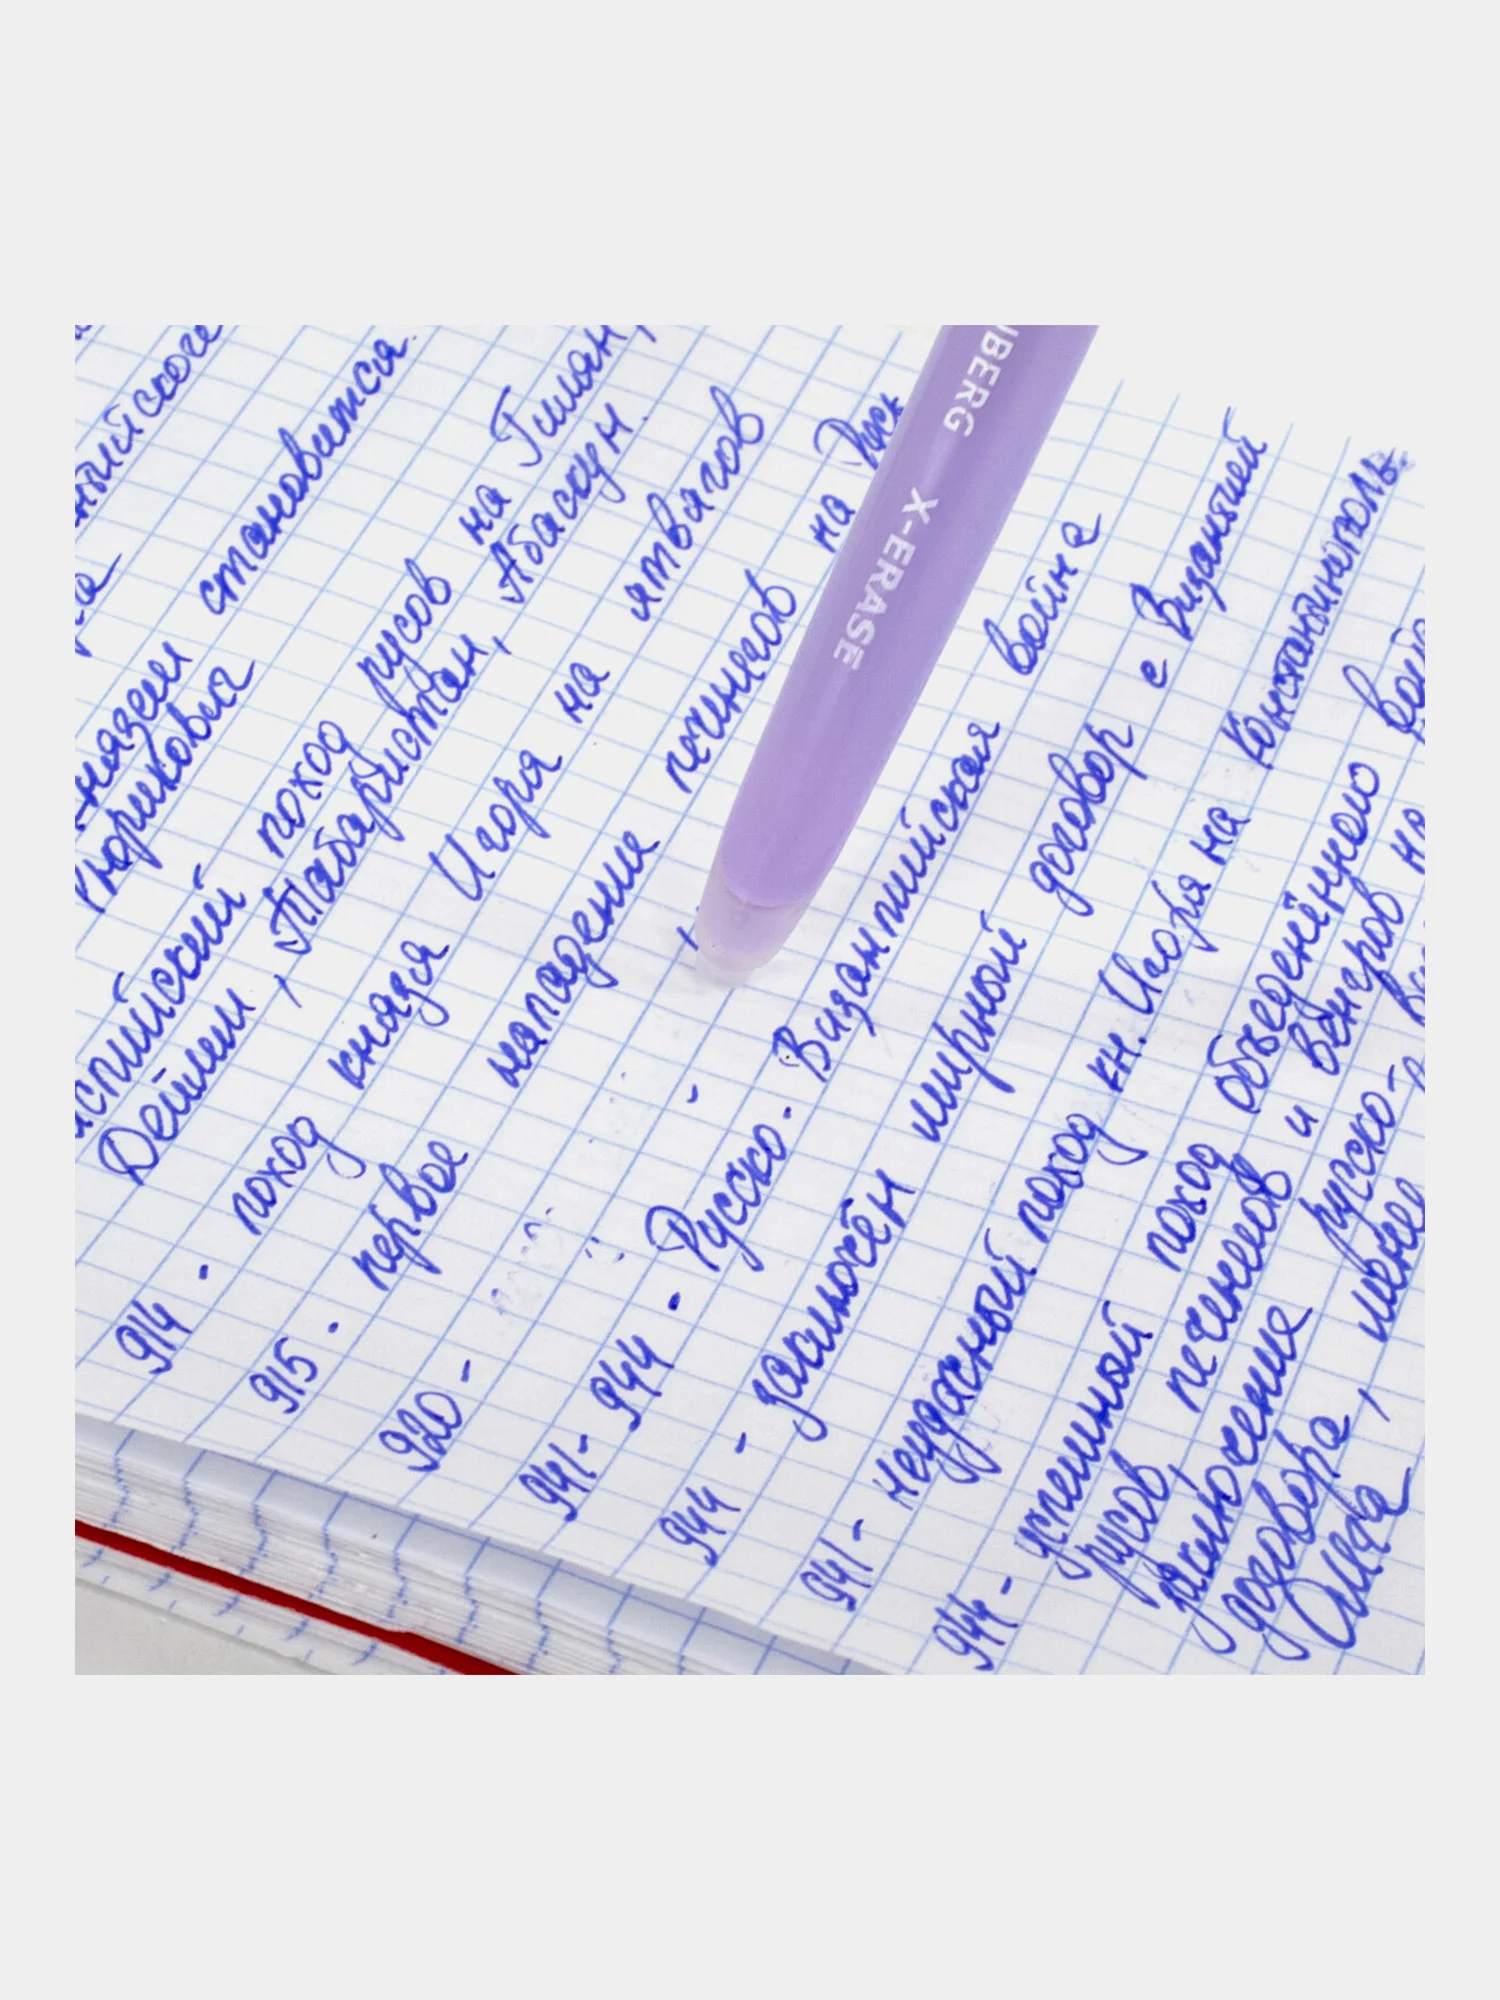 нязем становится
Рюриковна
спийский поход русов на Гилян,
Дейлем, Табаристан, Абаскун.
914 - поход князя Игоря на ятвягов
915 - первое нападение печенегов на Русь
920 -
941-944 - Русско-Византийская война
944 - заключён мирный договор с Византией
941 - неудачный поход кн. Игоря на Константинополь
944 - успешный поход объеденённого
русов, печенегов и венгров на
заключение русско-
договора, менее
Олега
UBERG
X-ERASE